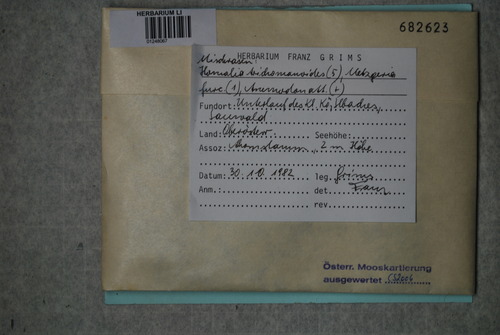 HERBARIUM LI
682623
HERBARIUM FRANZ GRIMS
Mischrasen:
Homalia trichomanoides (5), Metzgeria
furc (1), Anomodon att. (+)
Fundort: Unterlauf des Kl. Kößlbaches,
Sauwald
Land: Oberösterr. Seehöhe:
Assoz: Ahornstamm, 2 m Höhe
Datum: 30. 10. 1982 leg. Grims
Anm.: det. Franz
rev.
Österr. Mooskartierung
ausgewertet